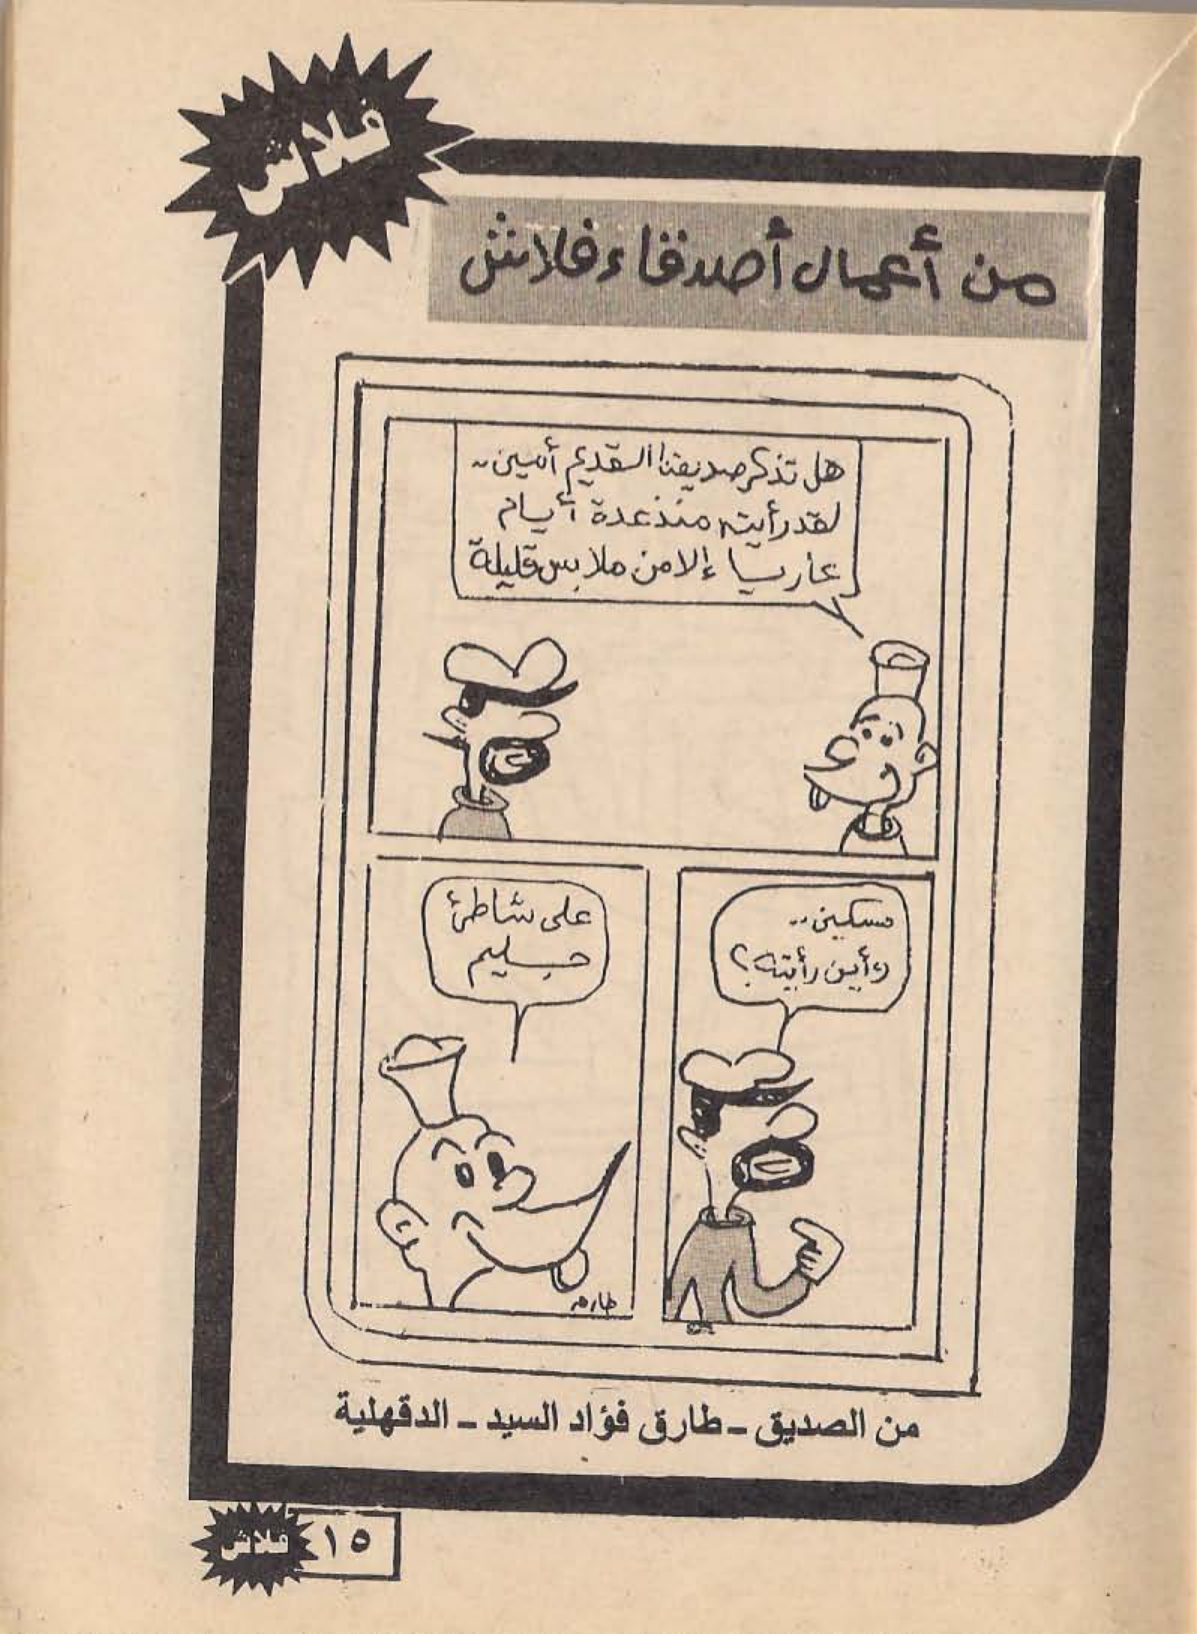 فلاش
من أعمال أصدقاء فلاش
هل تذكر صديقنا القديم أمين..
لقد رأيته منذ عدة أيام
عاريا إلا من ملابس قليلة
مسكين..
وأين رأيته؟
على شاطئ
جليم
طارق
من الصديق ـ طارق فؤاد السيد ـ الدقهلية
١٥
فلاش